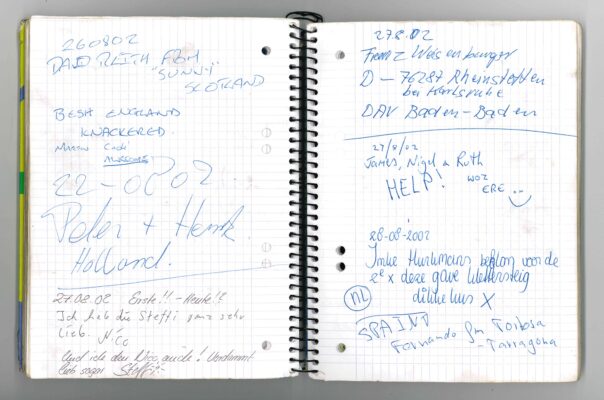 260802
DAVID REITH FROM
"SUNNY"
SCOTLAND
BESH ENGLAND
KNACKERED.
22-0802
Peter + Henk
Holland.
27.08.02 Erste!! - Heute!?
Ich hab die Steffi ganz sehr
lieb. Nico
Und ich den Nico, auch! Verdammt
lieb sogar Steffi
27.8.02
Franz Weisenburger
D - 76287 Rheinstetten
bei Karlsruhe
DAV Baden-Baden
27/8/02
James, Nigel & Ruth
HELP! WOZ
ERE
28-08-2002
voor de
2e x deze gave
X
NL
SPAIN
Fernando from Tortosa
- Tarragona